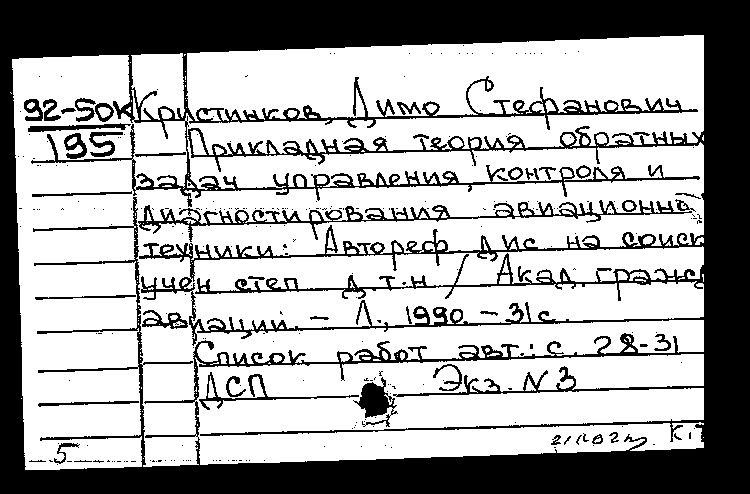 92-50К Кристинков, Димо Стефанович
195 Прикладная теория обратных
задач управления, контроля и
диагностирования авиационно
техники: Автореф дис на соиск
учен степ д.т.н / Акад. гражд
авиации. - Л., 1990. - 31с.
Список работ авт.: с. 28-31
ДСП Экз. N 3
5 К.Т